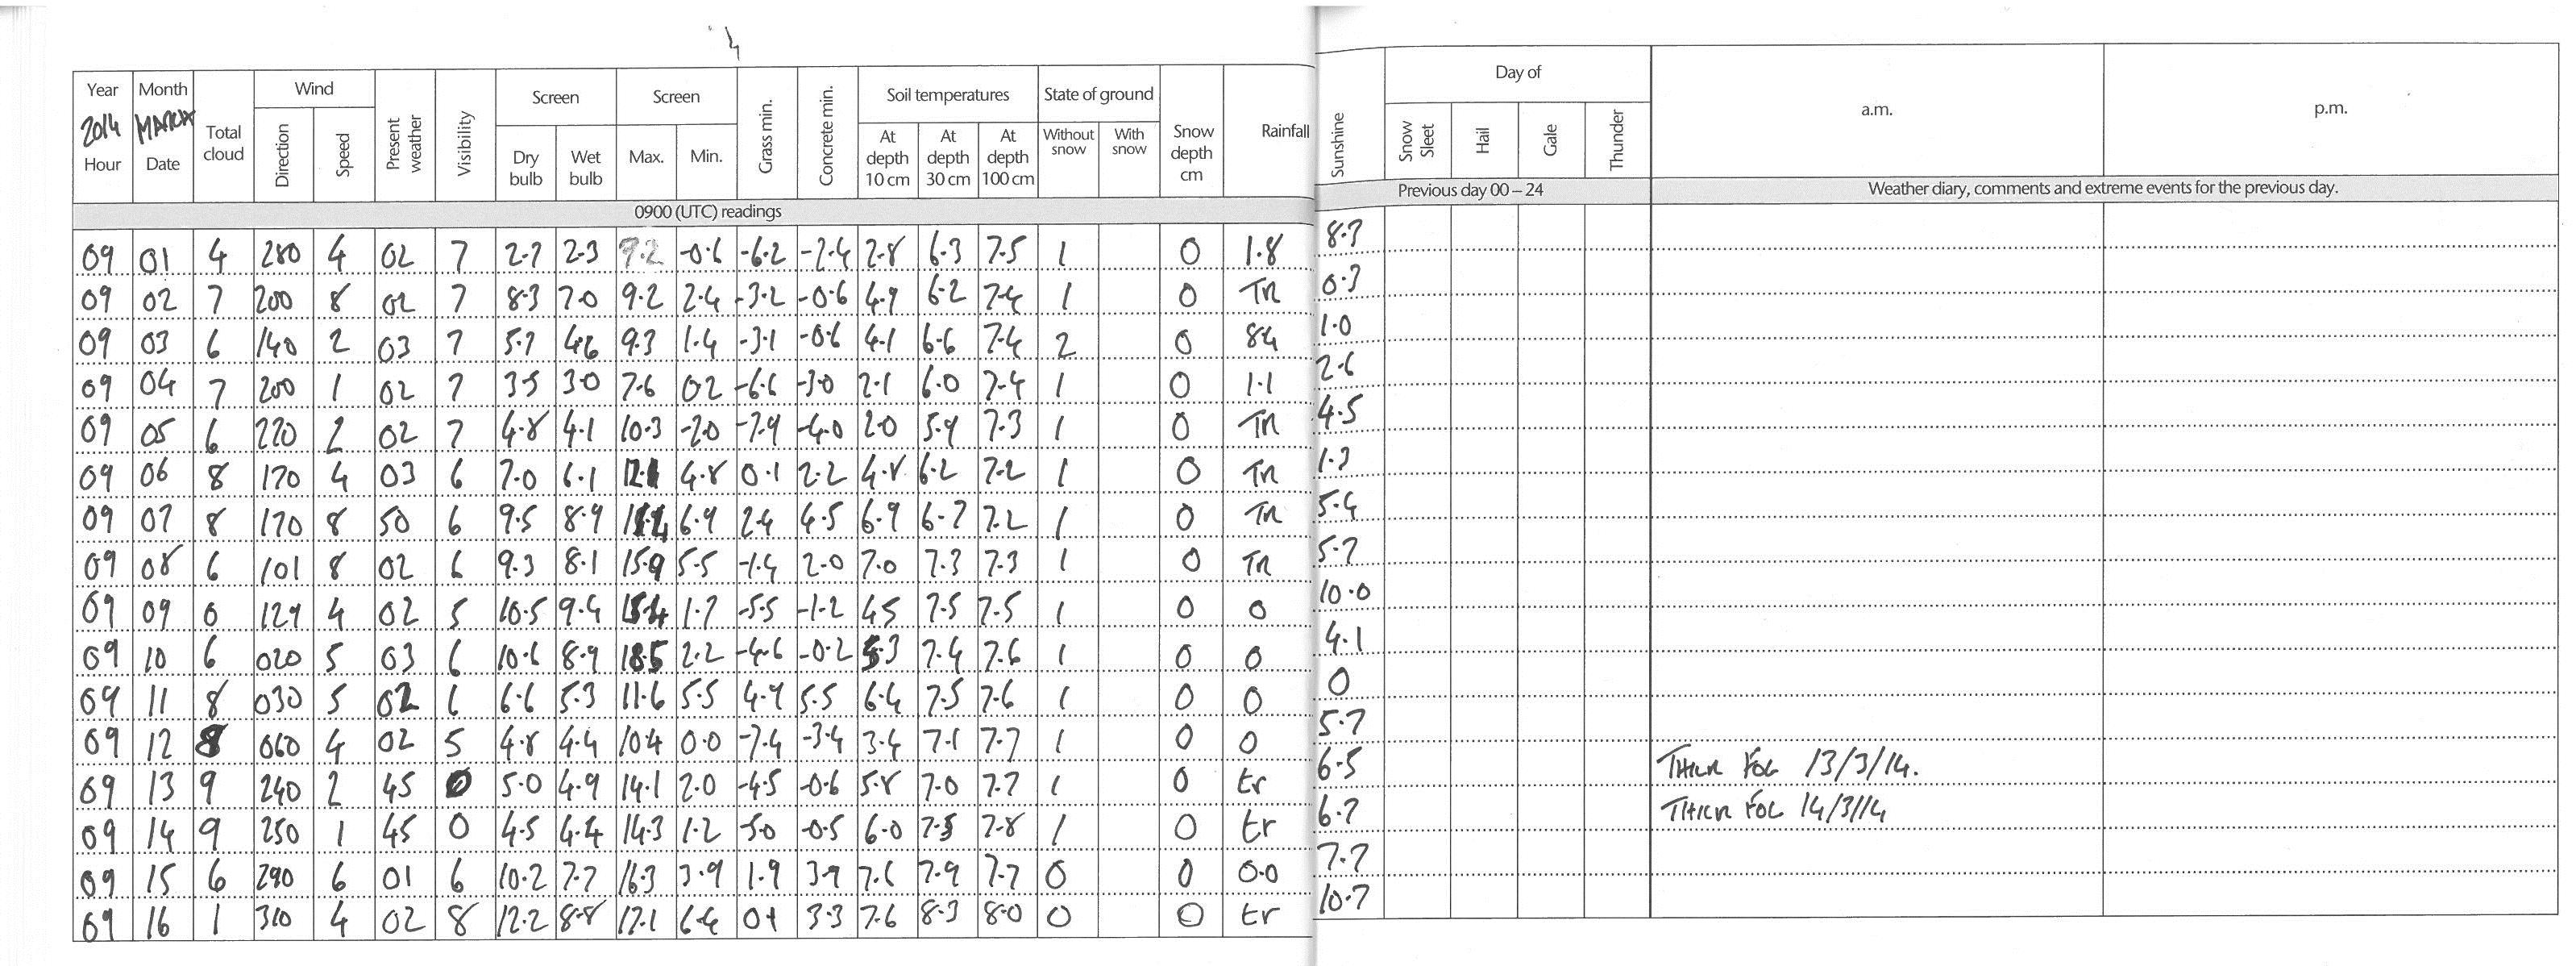 Year Month Total cloud Wind Present weather Visibility Screen Screen Grass min. Concrete min. Soil temperatures State of ground Snow depth cm Rainfall Sunshine Day of a.m. p.m.
2014 MARCH Direction Speed At depth 10 cm At depth 30 cm At depth 100 cm Without snow With snow Snow Sleet Hail Gale Thunder
Hour Date Dry bulb Wet bulb Max. Min.
Previous day 00 – 24 Weather diary, comments and extreme events for the previous day.
0900 (UTC) readings
09 01 4 280 4 02 7 2.7 2.3 9.2 -0.6 -6.2 -2.4 2.8 6.3 7.5 1 0 1.8 8.3
09 02 7 200 8 02 7 8.3 7.0 9.2 2.4 -3.2 -0.6 4.9 6.2 7.4 1 0 TR 0.3
09 03 6 140 2 03 7 5.7 4.6 9.3 1.4 -3.1 -0.6 4.1 6.6 7.4 2 0 8.4 1.0
09 04 7 200 1 02 7 3.5 3.0 7.6 0.2 -6.6 -3.0 2.1 6.0 7.4 1 0 1.1 2.6
09 05 6 220 2 02 7 4.8 4.1 10.3 -2.0 -7.9 -4.0 2.0 5.9 7.3 1 0 TR 4.5
09 06 8 170 4 03 6 7.0 6.1 4.8 0.1 2.2 4.8 6.2 7.2 1 0 TR 1.3
09 07 8 170 8 50 6 9.5 8.9 6.9 2.4 4.5 6.9 6.7 7.2 1 0 TR 5.4
09 08 6 101 8 02 6 9.3 8.1 15.9 5.5 -1.4 2.0 7.0 7.3 7.3 1 0 TR 5.7
09 09 0 129 4 02 5 10.5 9.4 15.4 1.7 -5.5 -1.2 4.5 7.5 7.5 1 0 0 10.0
09 10 6 020 5 03 6 10.6 8.9 18.5 2.2 -4.6 -0.2 5.3 7.4 7.6 1 0 0 4.1
09 11 8 030 5 02 6 6.6 5.3 11.6 5.5 4.9 5.5 6.4 7.5 7.6 1 0 0 0
09 12 8 060 4 02 5 4.8 4.4 10.4 0.0 -7.4 -3.4 3.4 7.1 7.7 1 0 0 5.7
09 13 9 240 2 45 0 5.0 4.9 14.1 2.0 -4.5 -0.6 5.8 7.0 7.7 1 0 tr 6.5 THICK FOG 13/3/14.
09 14 9 250 1 45 0 4.5 4.4 14.3 1.2 -5.0 -0.5 6.0 7.5 7.8 1 0 tr 6.7 THICK FOG 14/3/14
09 15 6 290 6 01 6 10.2 7.7 16.3 3.9 1.9 3.9 7.6 7.9 7.7 0 0 0.0 7.7
09 16 1 310 4 02 8 12.2 8.8 17.1 6.4 0.1 3.3 7.6 8.3 8.0 0 0 tr 10.7